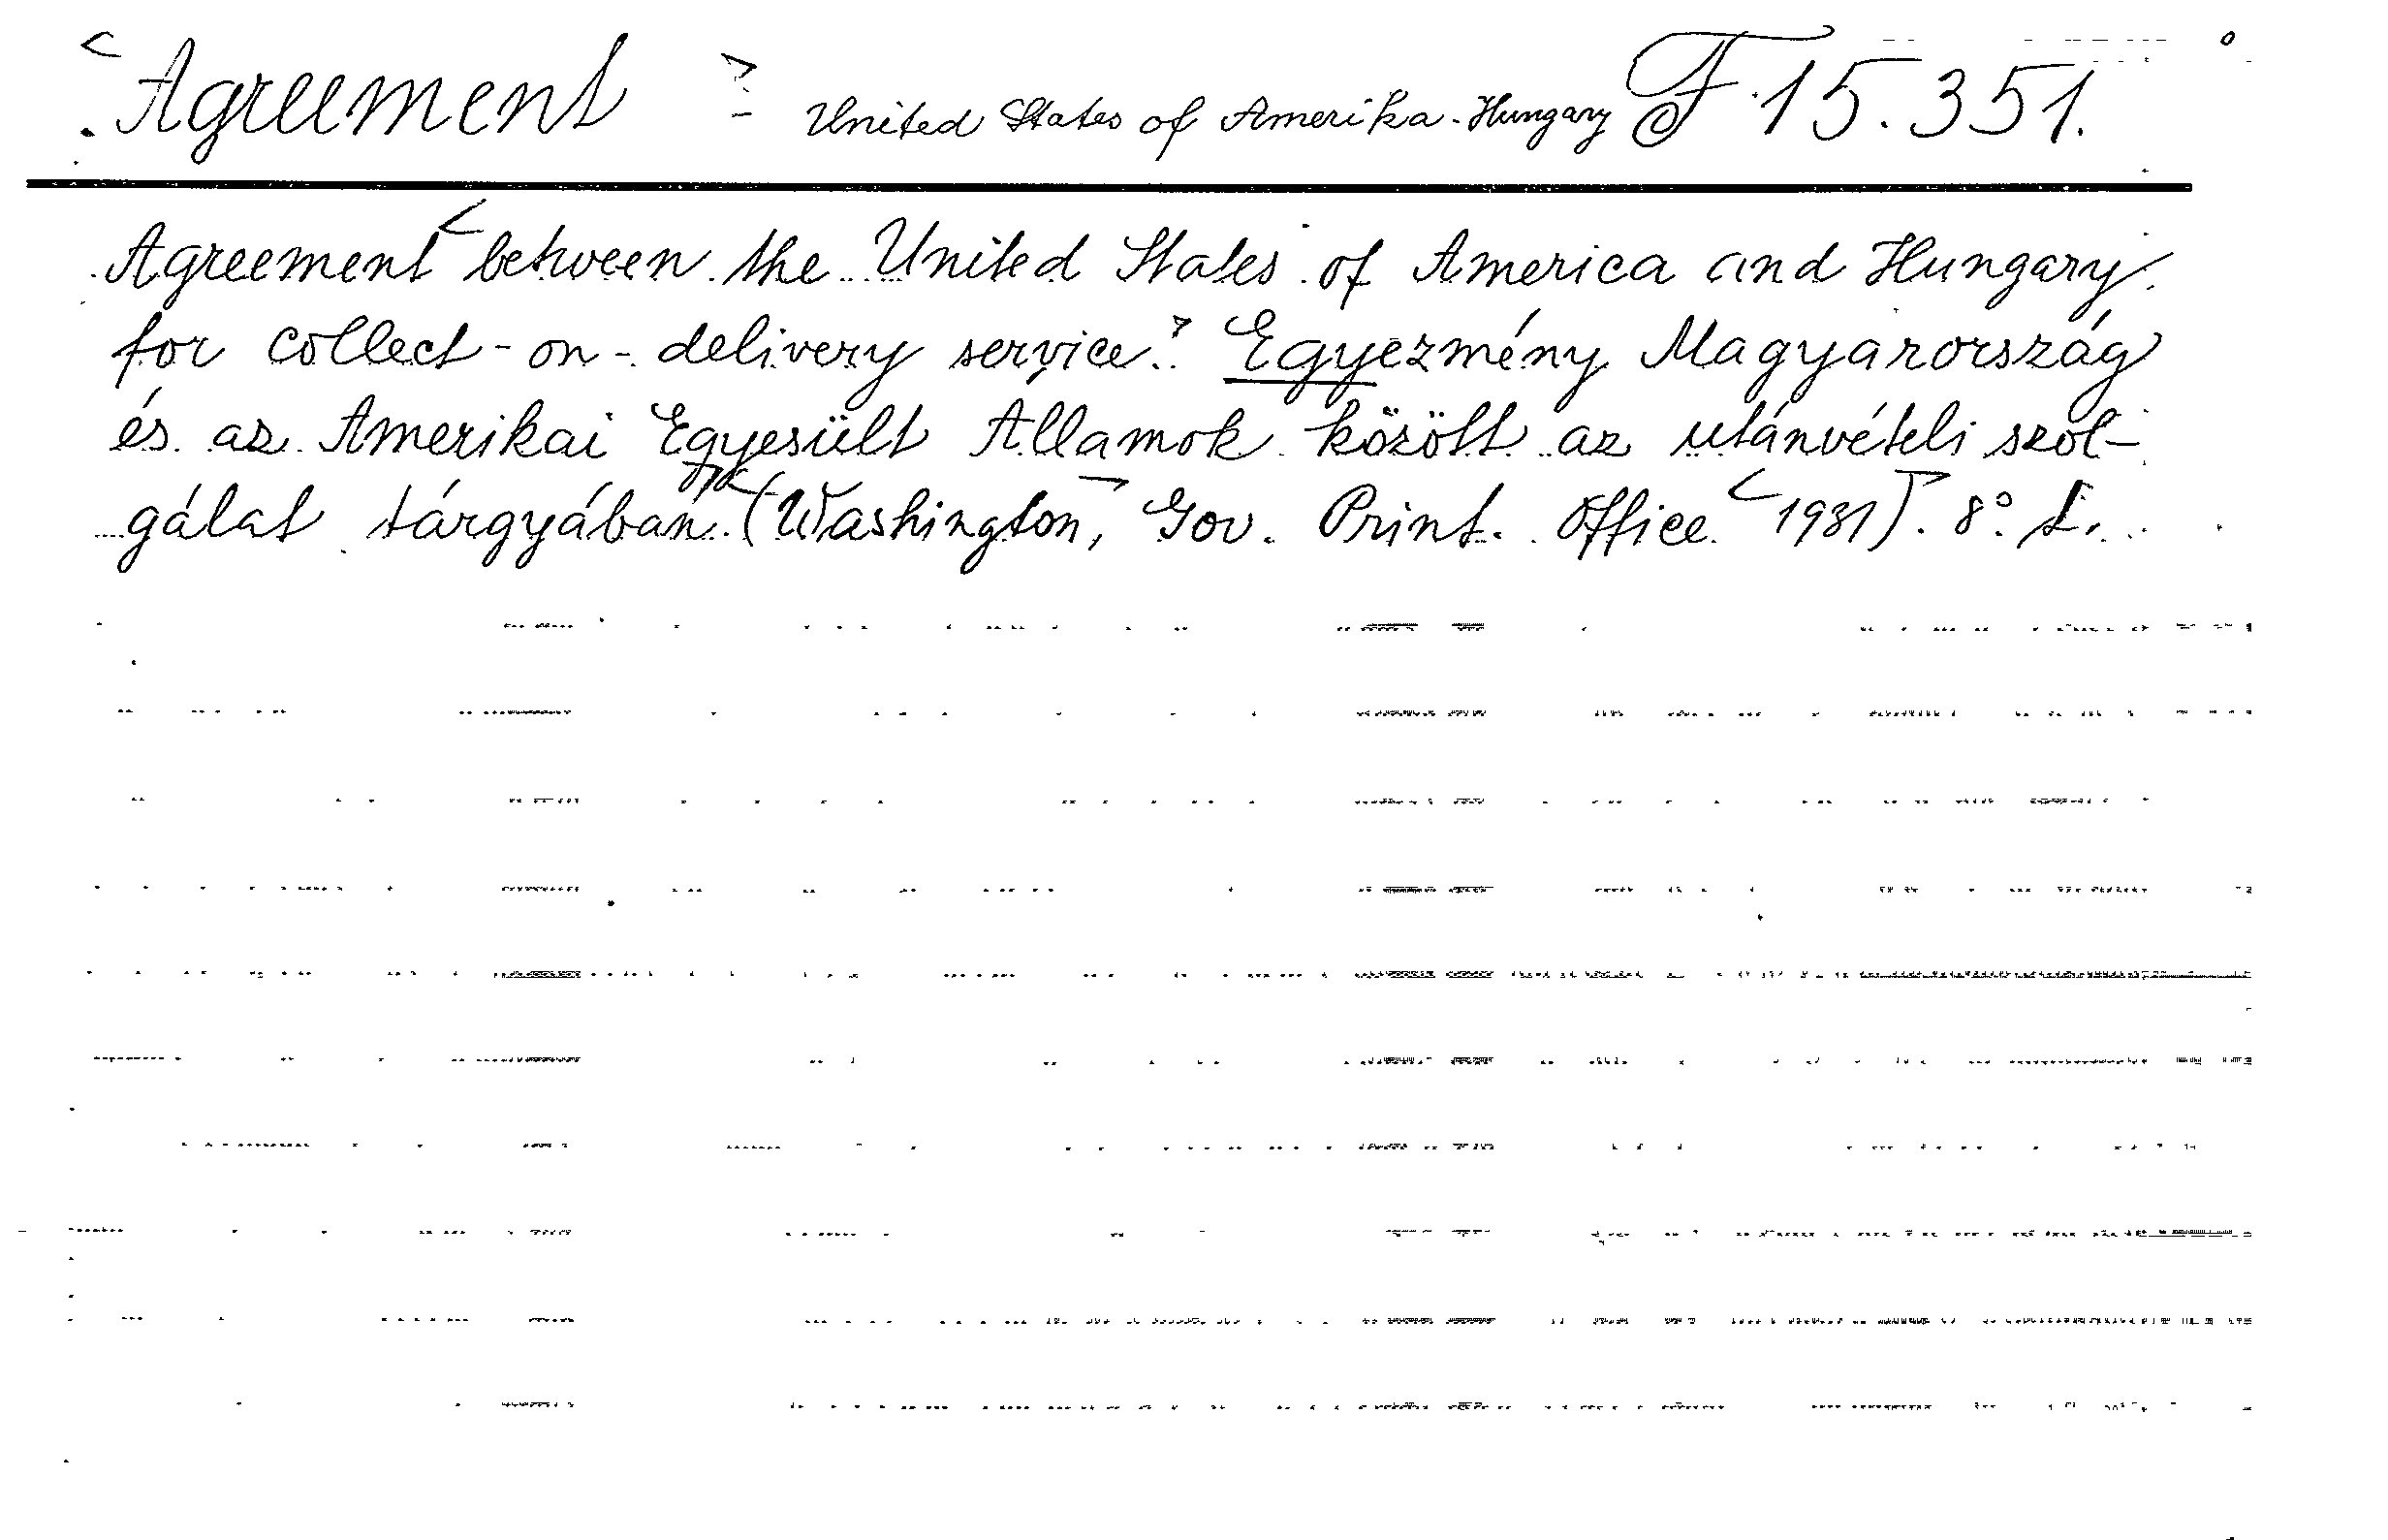 <Agreement> - United States of Amerika - Hungary F 15.351.
Agreement < between the United States of America and Hungary
for collect-on-delivery service.> Egyezmény Magyarország
és az Amerikai Egyesült Államok között az utánvételi szol-
gálat tárgyában. (Washington, Gov. Print. Office < 1931>). 8° L.